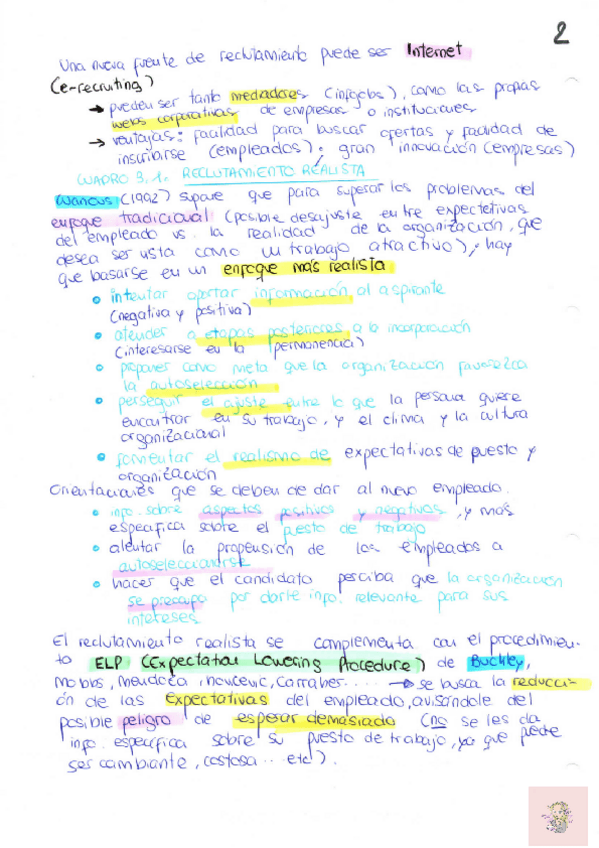 2
Una nueva fuente de reclutamiento puede ser Internet
(e-recruiting)
→ pueden ser tanto mediadores (infojobs), como las propias
webs corporativas de empresas o instituciones
→ ventajas: facilidad para buscar ofertas y facilidad de
inscribirse (empleados); gran innovación (empresas)
CUADRO 3.1. RECLUTAMIENTO REALISTA
Wanous (1992) supone que para superar los problemas del
enfoque tradicional (posible desajuste entre expectativas
del empleado vs. la realidad de la organización, que
desea ser vista como un trabajo atractivo), hay
que basarse en un enfoque más realista
• intentar aportar información al aspirante
(negativa y positiva)
• atender a etapas posteriores a la incorporación
(interesarse en la permanencia)
• proponer como meta que la organización favorezca
la autoselección
• perseguir el ajuste entre lo que la persona quiere
encontrar en su trabajo, y el clima y la cultura
organizacional
• fomentar el realismo de expectativas de puesto y
organización
Orientaciones que se deben de dar al nuevo empleado.
• info. sobre aspectos positivos y negativos, y más
específica sobre el puesto de trabajo
• alentar la propensión de los empleados a
autoseleccionarse
• hacer que el candidato perciba que la organización
se preocupa por darle info. relevante para sus
intereses
El reclutamiento realista se complementa con el procedimien-
to ELP (Expectation Lowering Procedure) de Buckley,
Mobbs, Mendoza, Novicevic, Carraher.... → se busca la reducci-
ón de las expectativas del empleado, avisándole del
posible peligro de esperar demasiado (no se les da
info. específica sobre su puesto de trabajo, ya que puede
ser cambiante, costosa... etc).